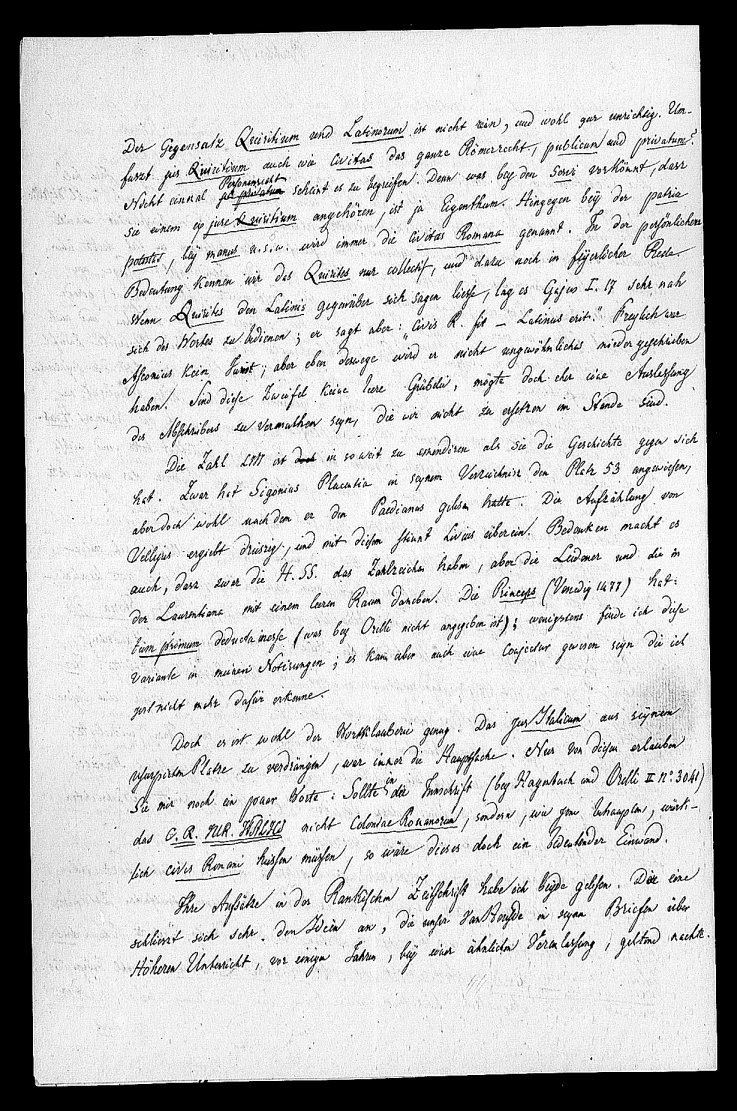 Der Gegensatz Quiritium und Latinorum ist nicht rein, und wohl gar unrichtig. Um-
faszt jus Quiritium auch wie civitas das ganze Römerrecht, publicum und privatum?
Nicht einmal Personenrecht jus privatum scheint es zu begreifen. Denn was bey den Soci vorkömmt, dasz
sie einem ex jure Quiritium angehören, ist ja Eigenthum. Hingegen bey der patria
potestas, bey manus u.s.w. wird immer die civitas Romana genannt. In der persönlichen
Bedeutung kennen wir das Quirites nur collectif, und dazu noch in feyerlicher Rede.
Wenn Quirites den Latinis gegenüber sich sagen liesse, lag es Gajus I. 17 sehr nah
sich des Wortes zu bedienen; er sagt aber: "Civis R. fit – Latinus erit." Freylich war
Asconius kein Jurist; aber eben deswege wird er nicht ungewöhnliches niedergeschrieben
haben. Sind diese Zweifel keine leere Grübelei, mögte doch eher eine Auslassung
des Abschreibers zu vermuthen seyn, die wir nicht zu ersetzen im Stande sind.
Die Zahl LIII ist in so weit zu emendiren als sie die Geschichte gegen sich
hat. Zwar hat Sigonius Placentia in seynem Verzeichnisse den Platz 53 angewiesen,
aber doch wohl nach dem er den Paedianus gelesen hatte. Die Aufzählung von
Vellejus ergiebt dreiszig, und mit diesem stimmt Livius überein. Bedenken macht es
auch, dasz zwar die H.SS. das Zahlzeichen haben, aber die Leidener und die in
der Laurentiana mit einem leeren Raum daneben. Die Princeps (Venedig 1477) hat:
tum primum deducta inesse (was bey Orelli nicht angegeben ist); wenigstens finde ich diese
Variante in meinen Notirungen; es kann aber auch eine Conjectur gewesen seyn die ich
jezt nicht mehr dafür erkenne.
Doch es ist wohl der Wortklauberei genug. Das jus Italicum aus seynem
usurpirten Platze zu verdrängen, war immer die Hauptsache. Nur von diesem erlauben
Sie mir noch ein paar Worte: Sollte in der Innschrift (bey Hagenbuch und Orelli II n° 3041)
das C. R. nicht Coloniae Romanorum, sondern, wie jene behaupten, würk-
lich cives Romani heissen müssen, so wäre dieses doch ein bedeutender Einwand.
Ihre Aufsätze in der Rankischen Zeitschrift habe ich beyde gelesen. Der eine
schliesst sich sehr den Ideen an, die unser Van Heusde in seynen Briefen über
Höheren Unterricht, vor einigen Jahren, bey einer ähnlichen Veranlassung, geltend machte.